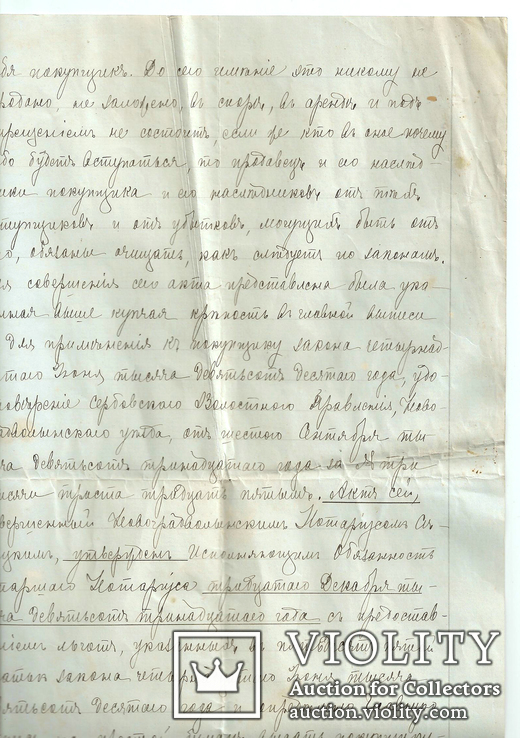 бя покупщикъ. До сего имѣніе это никому не
родано, не заложено, въ спорѣ, въ арендѣ и подъ
прещеніемъ не состоитъ, если же кто въ оное почему
бо будетъ вступаться, то продавецъ и его наслѣд-
ики покупщика и его наслѣдниковъ отъ тѣхъ
тупщиковъ и отъ убытковъ, могущихъ быть отъ
о, обязаны очищать, какъ слѣдуетъ по законамъ.
я совершенія сего акта представлена была ука-
нная выше купчая крѣпость въ главной выписи
для примѣненія къ покупщику закона четырнад-
таго Іюня тысяча девятьсотъ десятаго года, удо-
товѣреніе Сербовскаго Волостного Правленія, Ново-
адволынскаго уѣзда, отъ шестого Сентября ты-
ча девятьсотъ тринадцатаго года за № три
ысячи триста тридцать пятымъ. Актъ сей,
вершенный Новоградволынскимъ Нотаріусомъ
цкимъ, утвержденъ Исполняющимъ Обязанность
таршаго Нотаріуса тридцатаго Декабря ты-
ча девятьсотъ тринадцатаго года съ предостав-
ніемъ льготъ, указанныхъ въ
закона Іюня тысяча
вятьсотъ десятаго года и
VIOLITY
Auction for Collectors
auction.violity.com